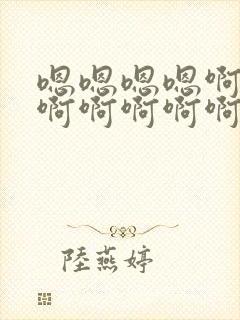 嗯嗯嗯嗯啊
啊啊啊啊啊
陸燕婷